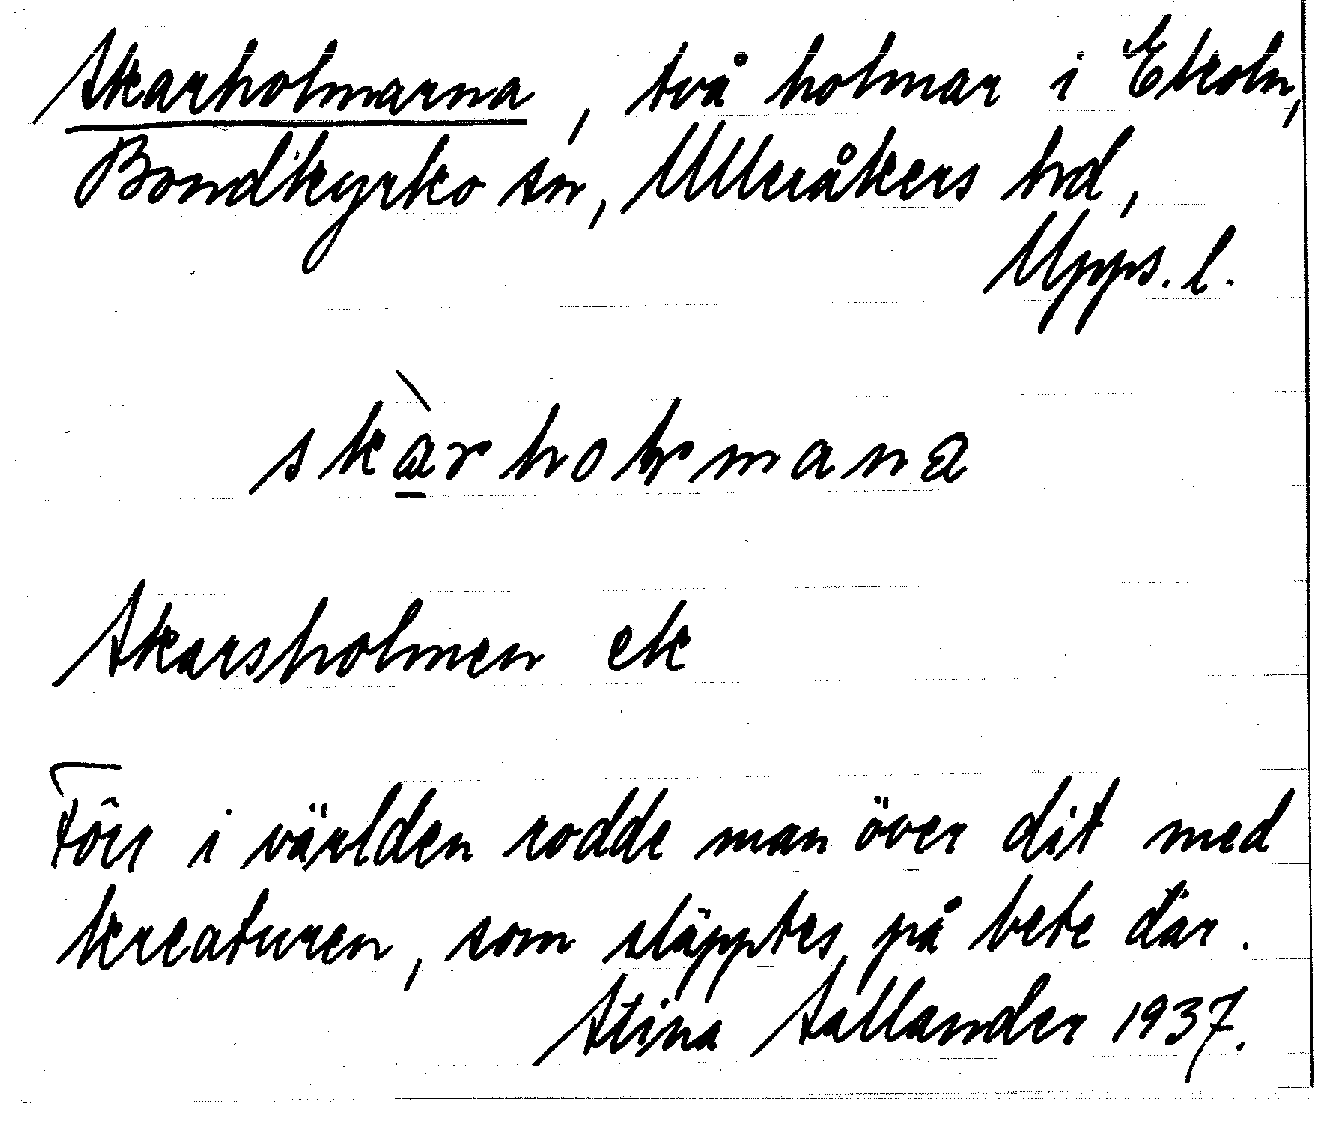 Skarholmarna, två holmar i Ekoln,
Bondkyrko sn, Ulleråkers hd,
Upps. l.
skàrholmana
Skarsholmen ek
Förr i världen rodde man över dit med
kreaturen, som släpptes på bete där.
Stina Sallander 1937.